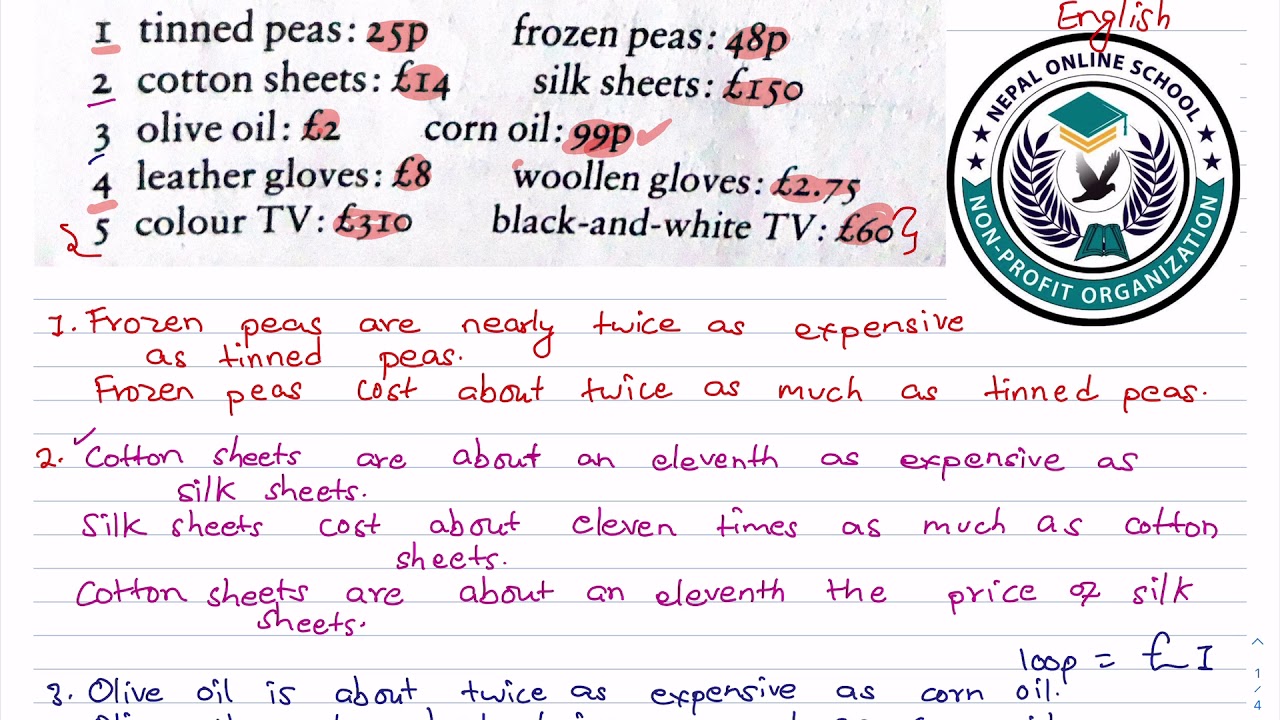 English
1 tinned peas: 25p frozen peas: 48p
2 cotton sheets: £14 silk sheets: £150
3 olive oil: £2 corn oil: 99p
4 leather gloves: £8 woollen gloves: £2.75
5 colour TV: £310 black-and-white TV: £60
NEPAL ONLINE SCHOOL
NON-PROFIT ORGANIZATION
1. Frozen peas are nearly twice as expensive
as tinned peas.
Frozen peas cost about twice as much as tinned peas.
2. Cotton sheets are about an eleventh as expensive as
silk sheets.
Silk sheets cost about eleven times as much as cotton
sheets.
Cotton sheets are about an eleventh the price of silk
sheets.
100p = £1
3. Olive oil is about twice as expensive as corn oil.
1
/
4